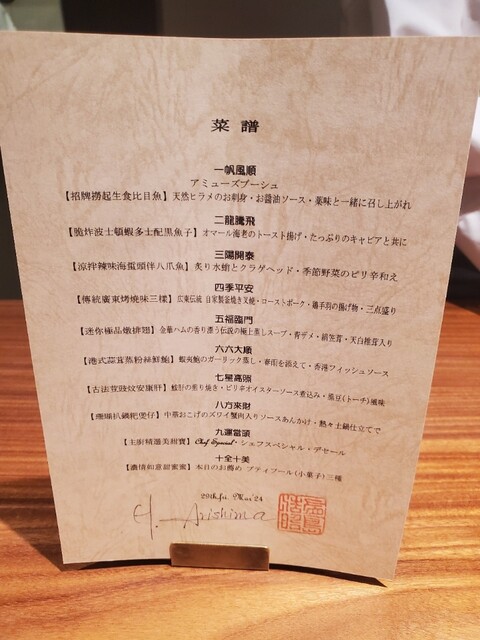 菜譜
一帆風順
アミューズブーシュ
【招牌撈起生食比目魚】天然ヒラメのお刺身・お醤油ソース・薬味と一緒に召し上がれ
二龍騰飛
【脆炸波士頓蝦多士配黒魚子】オマール海老のトースト揚げ・たっぷりのキャビアと共に
三陽開泰
【涼拌辣味海蜇頭伴八爪魚】炙り水蛸とクラゲヘッド・季節野菜のピリ辛和え
四季平安
【傳統廣東烤燒味三樣】広東伝統 自家製釜焼き叉焼・ローストポーク・鶏手羽の揚げ物・三点盛り
五福臨門
【迷你極品燉排翅】金華ハムの香り漂う伝説の極上蒸しスープ・青ザメ・絹笠茸・天白椎茸入り
六六大順
【港式蒜茸蒸粉絲鮮鮑】蝦夷鮑のガーリック蒸し・春雨を添えて・香港フィッシュソース
七星高照
【古法荳豉炆安康肝】鮟肝の煮り焼き・ピリ辛オイスターソース煮込み・黒豆(トーチ)風味
八方來財
【珊瑚扒鍋粑煲仔】中華おこげのズワイ蟹肉入りソースあんかけ・熱々土鍋仕立てで
九運當頭
【主廚精選美甜寶】Chef Special・シェフスペシャル・デセール
十全十美
【濃情如意甜蜜蜜】本日のお薦め プティフール(小菓子)三種
29th.fri. Mar.'24
H. Arishima